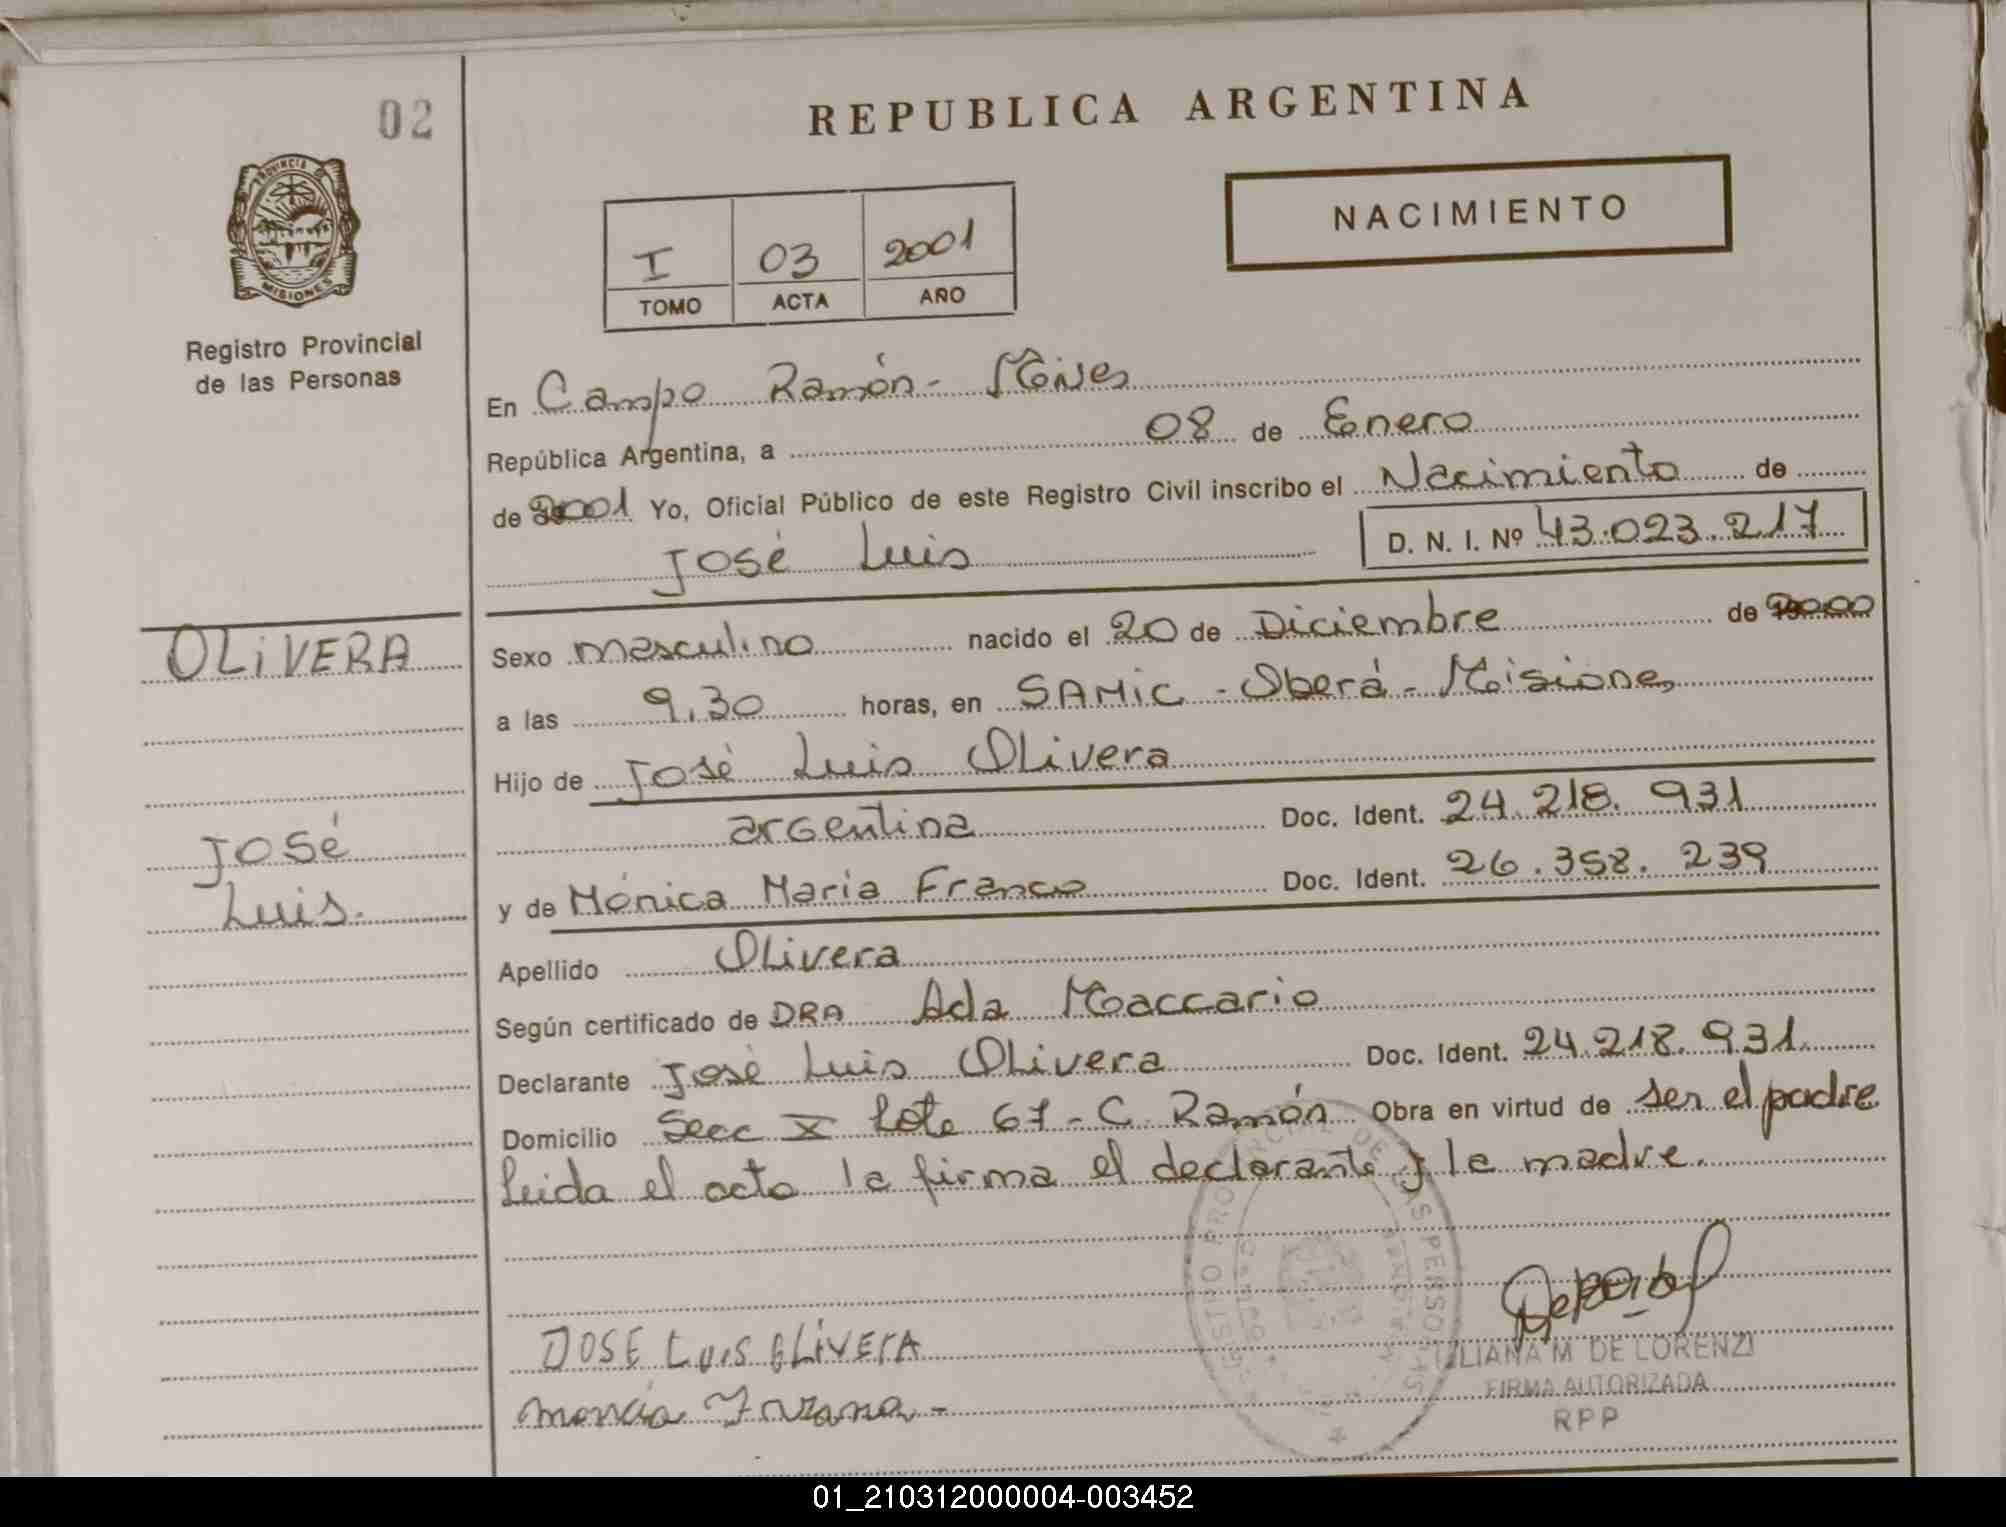 02
REPUBLICA ARGENTINA
PROVINCIA DE
MISIONES
Registro Provincial
de las Personas
NACIMIENTO
I 03 2001
TOMO ACTA AÑO
En Campo Ramón - Mones
República Argentina, a 08 de Enero
de 2001 Yo, Oficial Público de este Registro Civil inscribo el Nacimiento de
José Luis D. N. I. Nº 43.023.217
OLIVERA
José
Luis.
Sexo masculino nacido el 20 de Diciembre de 2000
a las 9.30 horas, en SAMIC - Oberá - Misiones
Hijo de José Luis Olivera
argentina Doc. Ident. 24.218.931
y de Mónica María Franco Doc. Ident. 26.358.239
Apellido Olivera
Según certificado de DRA Ada Maccario
Declarante José Luis Olivera Doc. Ident. 24.218.931.
Domicilio Secc X Lote 67 - C. Ramón Obra en virtud de ser el padre
Leida el acta la firma el declarante y la madre.
JOSE LUIS OLIVERA
LILIANA M DE LORENZI
FIRMA AUTORIZADA
RPP
01_210312000004-003452